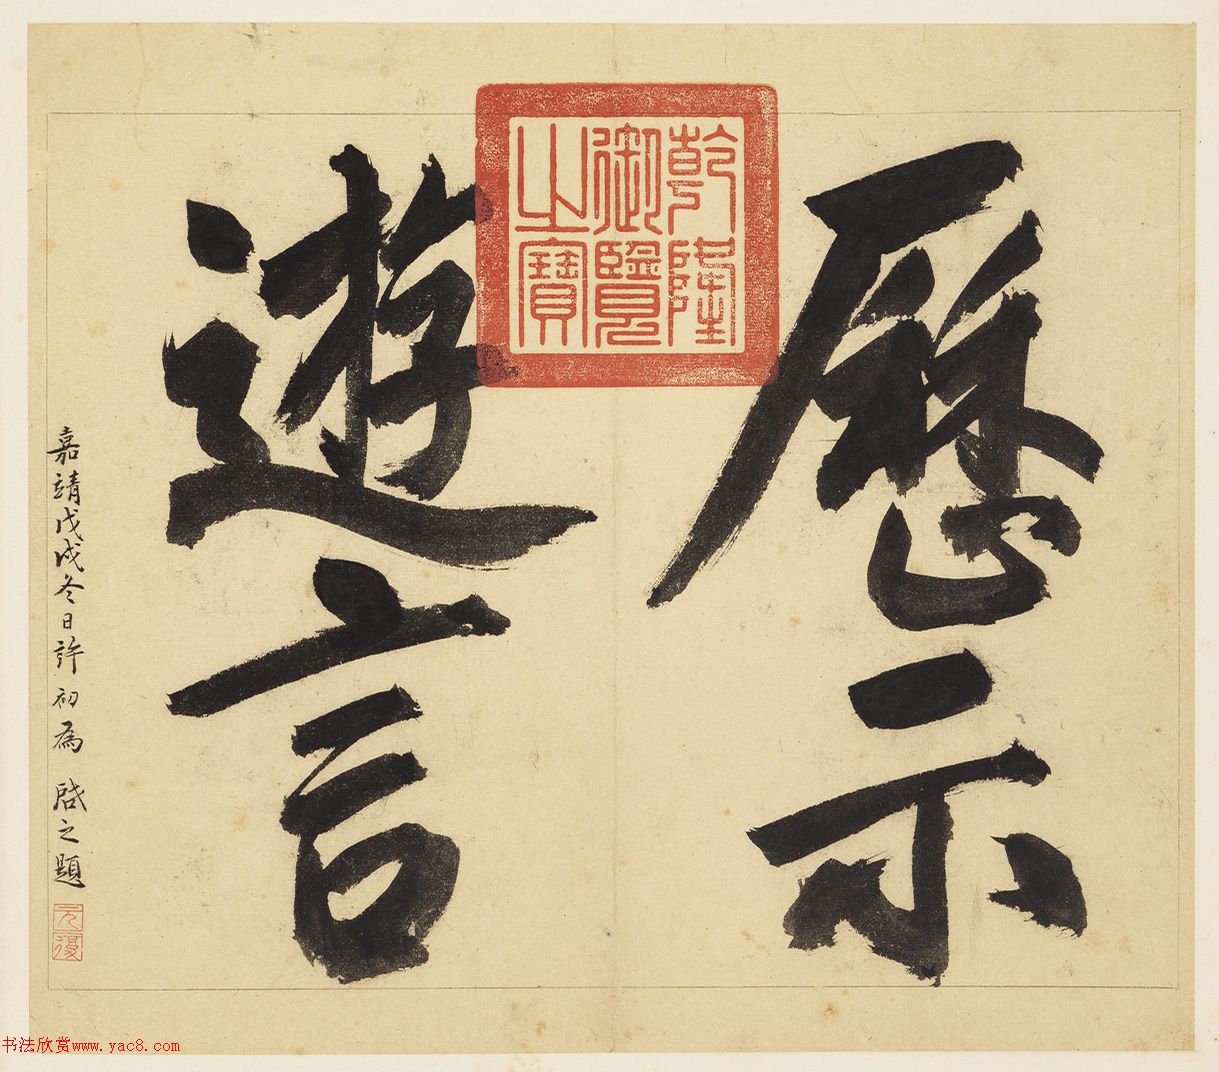 歷示
遊言
乾隆
御覽
之寶
嘉靖戊戌冬日許初為 啟之題
元
復
书法欣赏www.yac8.com